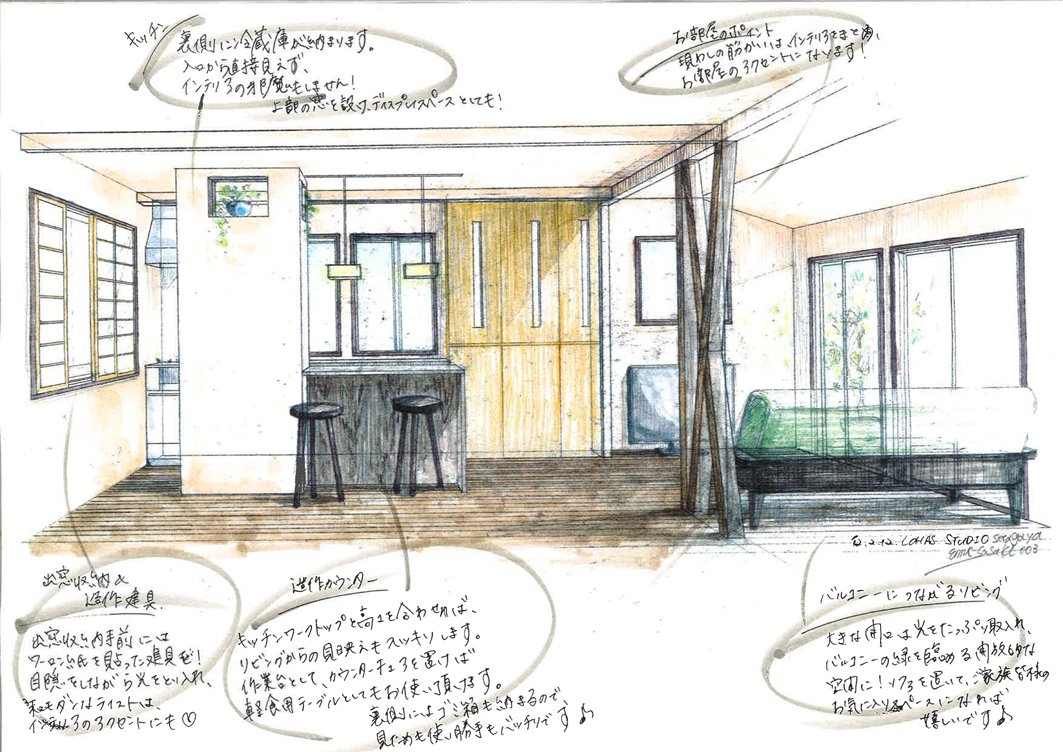 キッチン
裏側に冷蔵庫が納まります。
入口から直接見えず、
インテリアの邪魔もしません!
上部の窓を設け、ディスプレイスペースとしても!
お部屋のポイント
現わしの筋かいは、インテリアをまとめ、
お部屋のアクセントになります!
'12.2.12. LOHAS STUDIO
出窓収納&
造作建具
出窓収納手前には
ワーロン紙を貼った建具を!
目隠をしながら光をとり入れ、
和モダンなテイストは、
インテリアのアクセントにも♡
造作カウンター
キッチンワークトップと高さを合わせれば、
リビングからの見映えもスッキリします。
作業台として、カウンターチェアを置けば
軽食用テーブルとしてもお使い頂けます。
裏側にはゴミ箱も納まるので、
見ためも使い勝手もバッチリです♪
バルコニーにつながるリビング
大きな開口は光をたっぷり取入れ、
バルコニーの緑を臨める開放的な
空間に!ソファを置いて、ご家族皆様の
お気に入りスペースになれば
嬉しいです♪